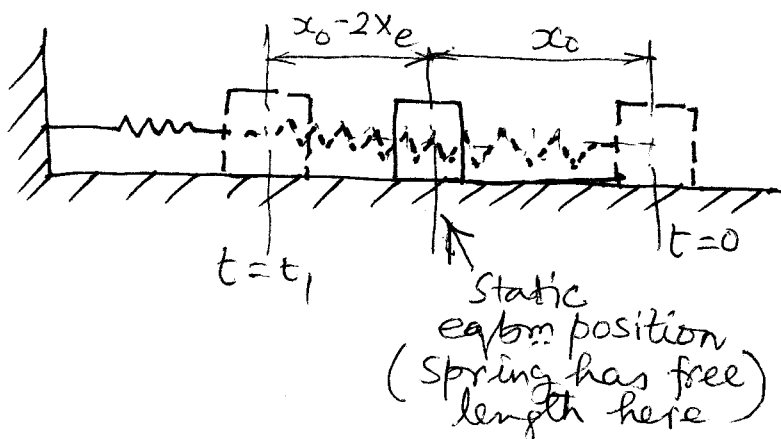 x₀-2xₑ
x₀
t=t₁
t=0
Static
eqbm position
(Spring has free)
length here